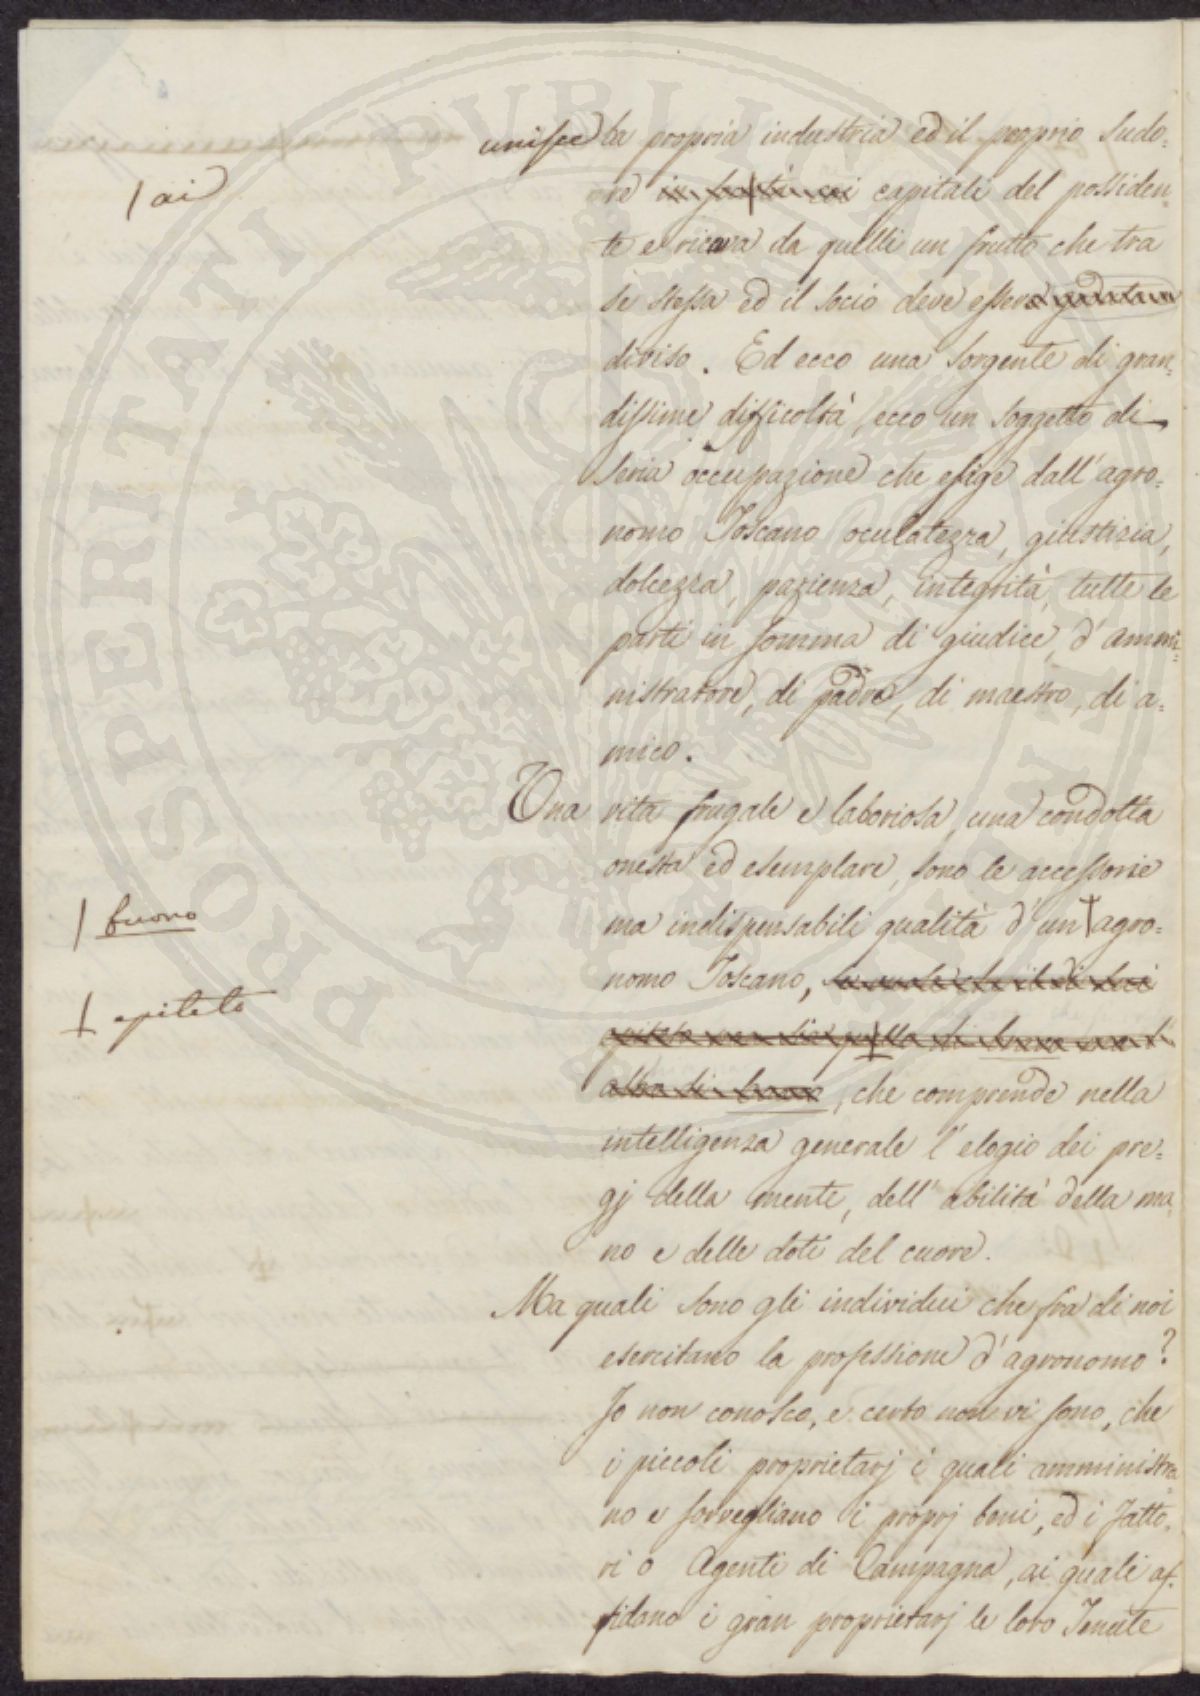 unisce la propria industria ed il proprio sudo=
re in ai capitali del possiden=
/ ai
te e ricava da quelli un frutto che tra
se stessa ed il socio deve essere
diviso. Ed ecco una sorgente di gran=
dissime difficoltà, ecco un soggetto di
seria occupazione che esige dall'agro=
nomo Toscano oculatezza, giustizia,
dolcezza, pazienza, integrità, tutte le
parti in somma di giudice, d'ammi=
nistratore, di padre, di maestro, di a=
mico.
Una vita frugale e laboriosa, una condotta
onesta ed esemplare, sono le accessorie
/ buono
ma indispensabili qualità d'un agro=
nomo Toscano,
+ epiteto
che comprende nella
intelligenza generale l'elogio dei pre=
gj della mente, dell'abilità della ma=
no e delle doti del cuore.
Ma quali sono gli individui che fra di noi
esercitano la professione d'agronomo?
Io non conosco, e certo non vi sono, che
i piccoli proprietarj i quali amministra=
no e sorvegliano i proprj beni, ed i Fatto=
ri o Agenti di Campagna, ai quali af=
fidano i gran proprietarj le loro Tenute
PROSPERITATI PUBLICAE